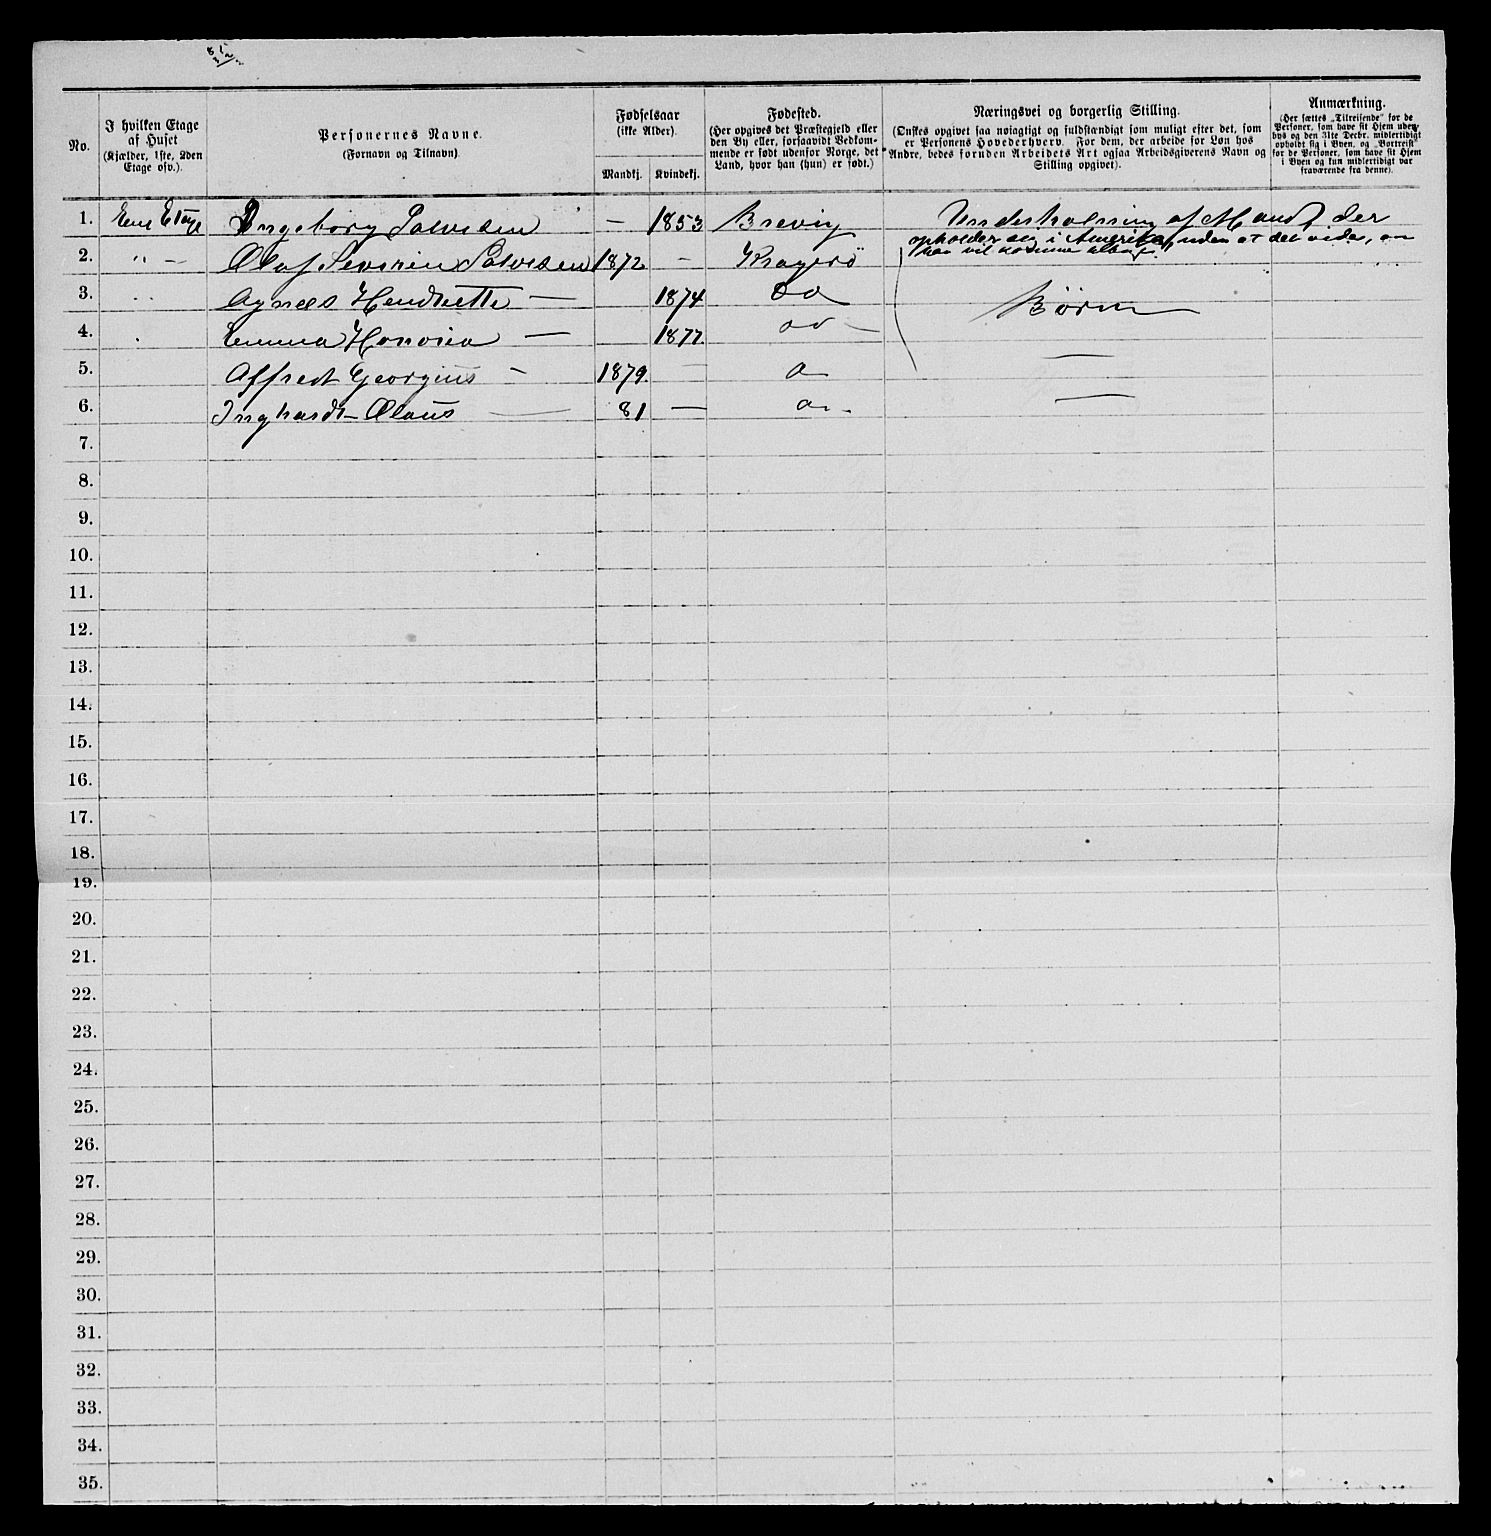 No.
I hvilken Etage af Huset (Kjælder, 1ste, 2den Etage osv.)
Personernes Navne. (Fornavn og Tilnavn)
Fødselsaar (ikke Alder).
Mandkj. Kvindekj.
Fødested. (Her opgives det Præstegjeld eller den By eller, forsaavidt Vedkommende er født udenfor Norge, det Land, hvor han (hun) er født.)
Næringsvei og borgerlig Stilling. (Ønskes opgivet saa nøiagtigt og fuldstændigt som muligt efter det, som er Personens Hovederhverv. For dem, der arbeide for Løn hos Andre, bedes foruden Arbeidets Art ogsaa Arbeidsgiverens Navn og Stilling opgivet).
Anmærkning. (Her sættes „Tilreisende" for de Personer, som have sit Hjem udenbys og den 31te Decbr. midlertidigt opholdt sig i Byen, og „Bortreist" for de Personer, som have sit Hjem i Byen og kun midlertidigt var fraværende fra denne).
1. Ene Etage Ingeborg Salvesen — 1853 Brevig Underholdning af Mand der
opholder sig i Amerika, uden at det vides, om
han vil komme tilbage
2. " — Olaf Severin Salvesen 1872 — Kragerö
3. " Agnes Hendriette — 1874 do Børn
4. " Emma Honoria — 1877 do —
5. Alfred Georgius — 1879 — do —
6. Inghardt Olaus — 81 — do —
7.
8.
9.
10.
11.
12.
13.
14.
15.
16.
17.
18.
19.
20.
21.
22.
23.
24.
25.
26.
27.
28.
29.
30.
31.
32.
33.
34.
35.